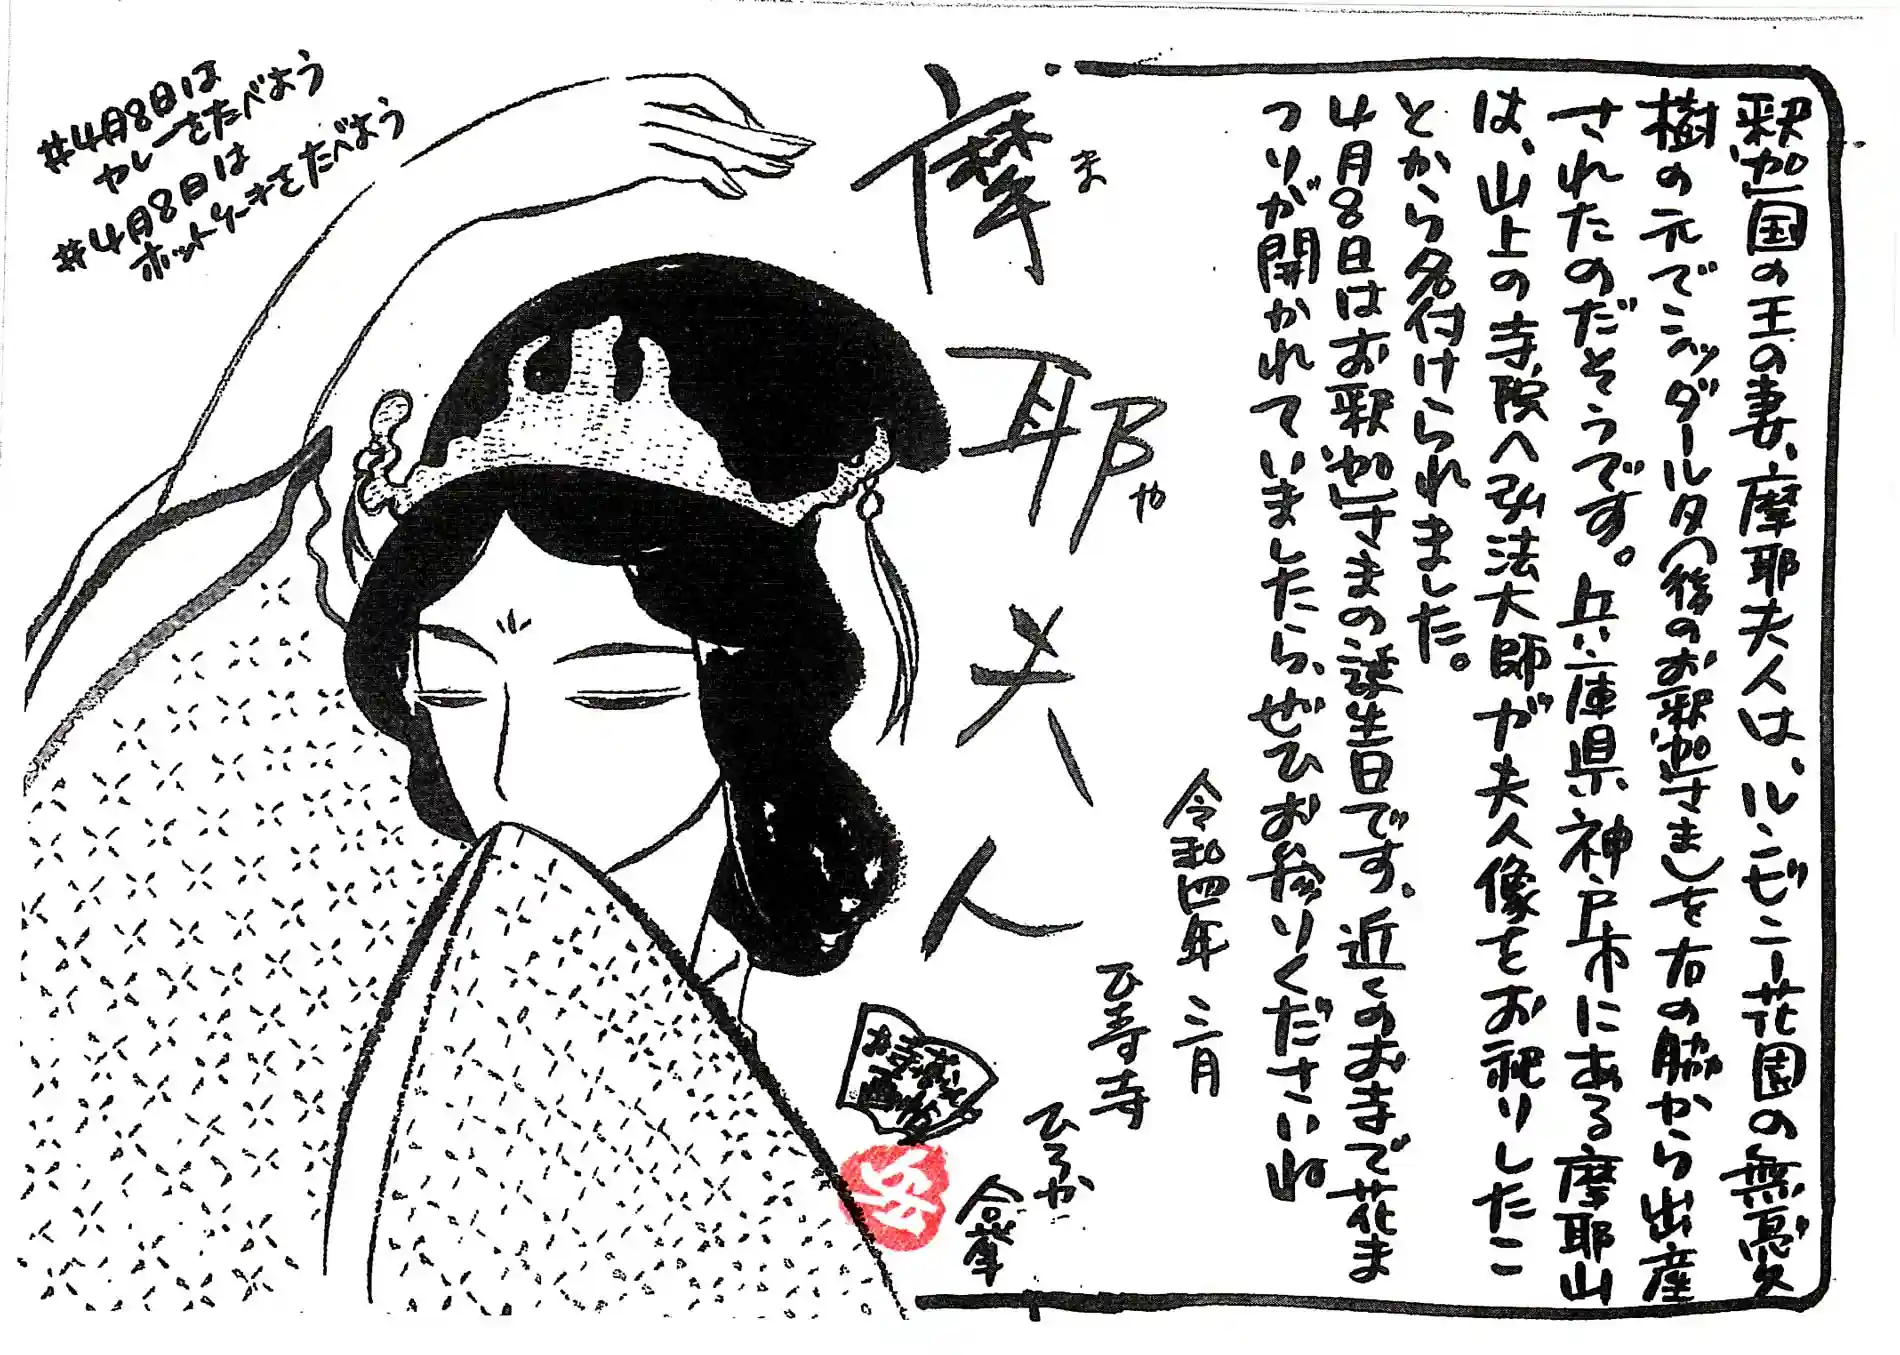 釈迦国の王の妻、摩耶夫人は、ルンビニー花園の無憂
樹の元でシッダールタ(後のお釈迦さま)を右の脇から出産
されたのだそうです。兵庫県、神戸市にある摩耶山
は、山上の寺院へ弘法大師が夫人像をお祀りしたこ
とから名付けられました。
4月8日はお釈迦さまの誕生日です。近くのお寺で花ま
つりが開かれていましたら、ぜひお参りくださいね
令和四年 三月
摩耶夫人
ま
や
ひろか
合掌
#4月8日は
カレーをたべよう
#4月8日は
ホットケーキをたべよう